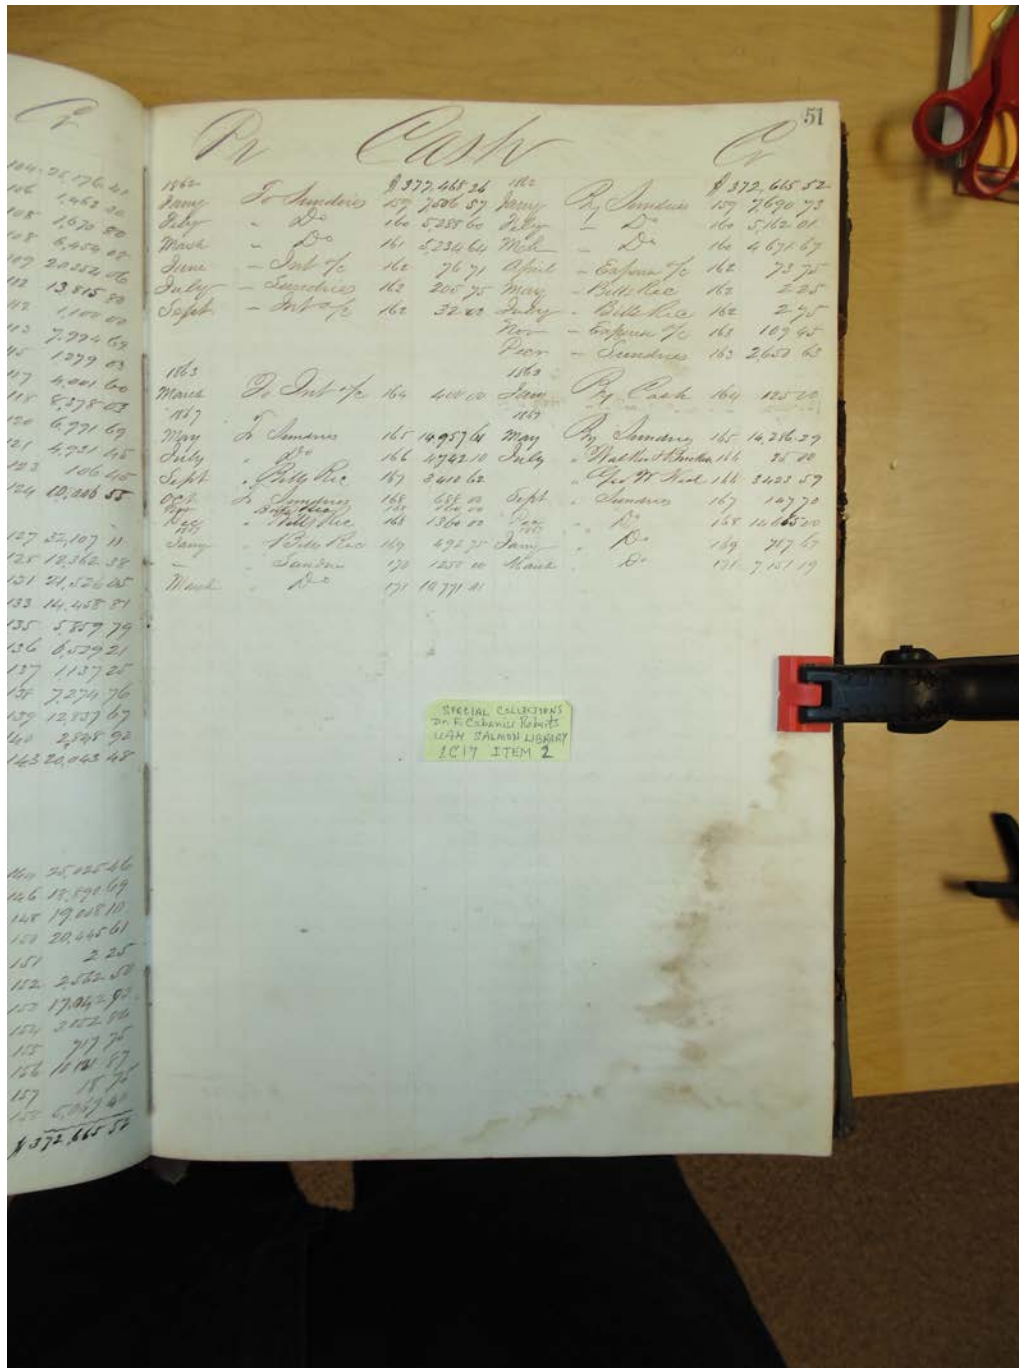 Cr
104 26,176 41
106 1,463 20
108 1,670 80
108 6,454 08
109 20352 06
112 13,815 80
112 1,100 00
113 7,994 69
115 1279 03
117 4,001 60
118 8,378 03
120 6,771 69
121 4,921 45
123 106 45
124 10,006 55
127 32,107 11
125 12,362 38
131 21,526 05
133 14,458 81
135 5,859 79
136 6,529 21
137 1,137 25
138 7,274 76
139 12,837 67
140 2,848 92
143 20,043 48
144 25,025 46
146 18,890 69
148 19,008 10
150 20,445 61
151 2 25
152 2,562 50
153 17,042 93
154 3052 86
155 717 75
156
157 18 75
$372,665 52
51
Dr Cash Cr
1862 $377,468 26 1862 $372,665 52
Jany To Sundries 159 7506 57 Jany By Sundries 159 7690 73
Feby " Do 160 5,288 60 Feby " Do 160 5,162 01
March " Do 161 5,234 64 Mch " Do 160 4671 67
June " Int a/c 162 76 71 April " Expense a/c 162 73 75
July " Sundries 162 205 75 May " Bills Rec 162 2 25
Sept " Int a/c 162 32 00 July " Bills Rec 162 2 75
Nov " Expense a/c 163 109 45
Decr " Sundries 163 2,650 63
1863 1863
March To Int a/c 164 400 00 Jany By Cash 164 125 00
1867 1867
May To Sundries 165 14,957 61 May By Sundries 165 14,286 29
July " Do 166 4742 10 July " Walker & 166 25 00
Sept " Bills Rec 167 3410 62 " Geo W Neal 166 3423 59
Oct To Sundries 168 688 00 Sept " Sundries 167 147 70
Nov Bills Rec 168
Dec " Bills Rec 168 1360 00 Dec " Do 168
Jany " Bills Rec 169 492 75 Jany " Do 169 757 67
" Sundries 170 1250 00 March " Do 171 7,151 19
March " Do 171 10,771 01
SPECIAL COLLECTIONS
Dr. F. Cabaniss Roberts
UAH SALMON LIBRARY
2C17 ITEM 2